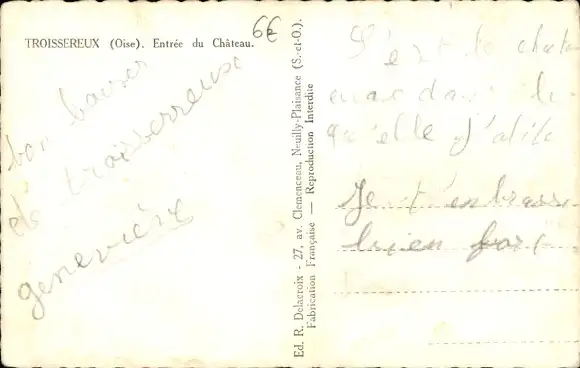 TROISSEREUX (Oise). Entrée du Château.
6€
bon baiser
de troisserreuse
geneviève
Ed. R. Delacroix - 27, av. Clemenceau, Neuilly-Plaisance (S.-et-O.).
Fabrication Française — Reproduction Interdite
C'est le
dans
qu'elle j'
Je t'embrasse
bien fort